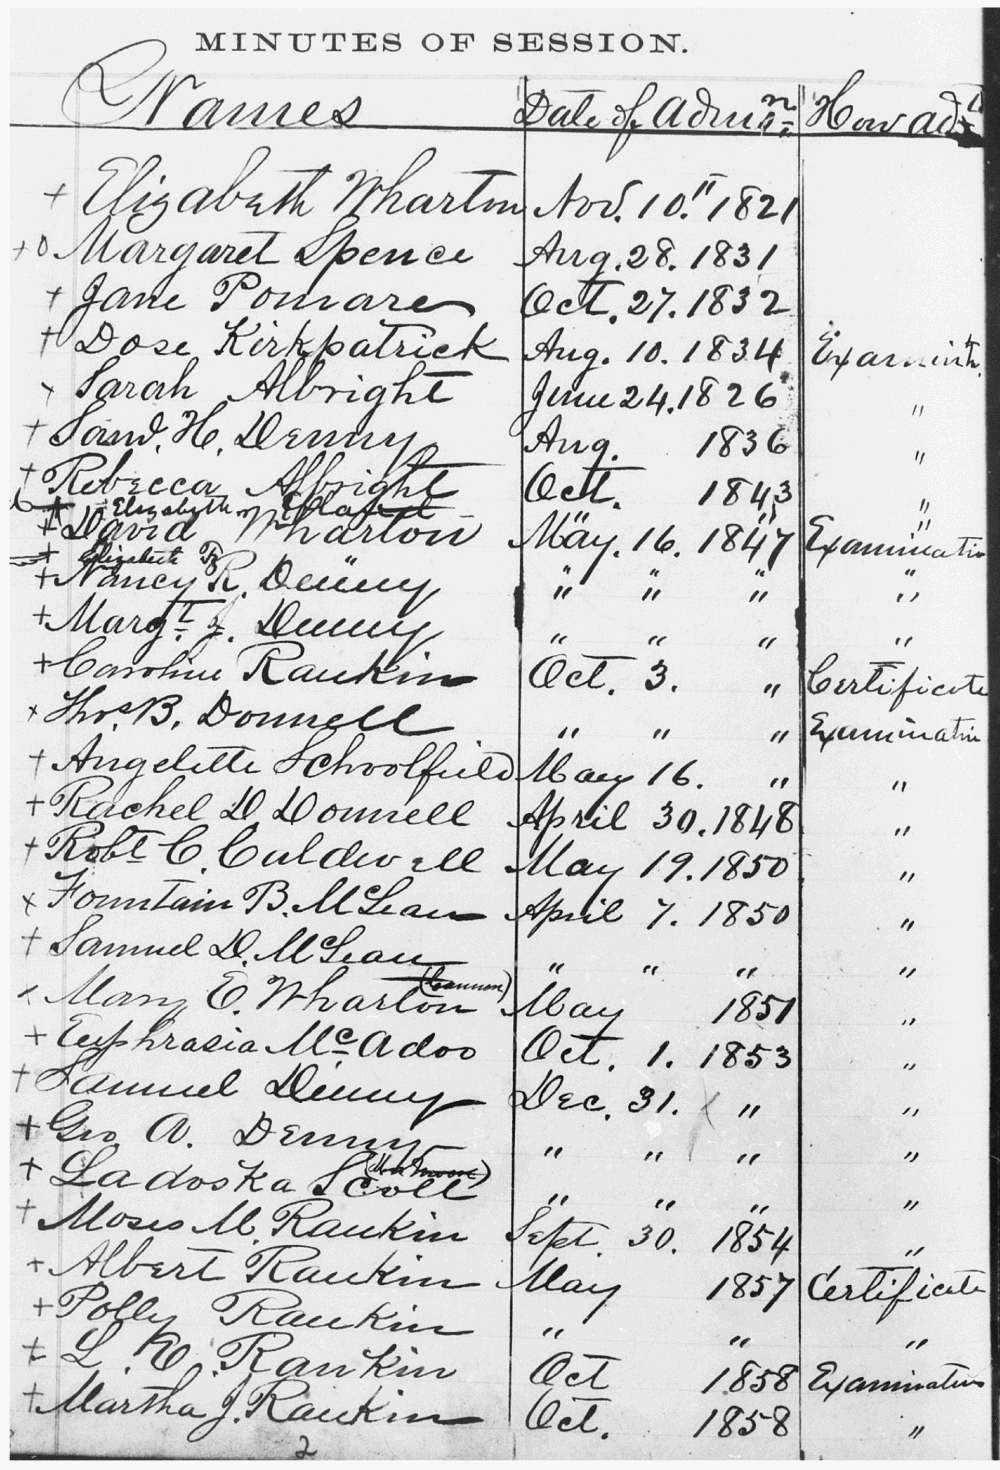 MINUTES OF SESSION.
Names Date of Admn. How ad
+ Elizabeth Wharton Nov. 10." 1821
+ o Margaret Spence Aug. 28. 1831
+ Jane Pomare Oct. 27. 1832
+ Dose Kirkpatrick Aug. 10. 1834 Examinatn.
x Sarah Albright June 24. 1826 "
+ Saml. H. Denny Aug. 1836 "
+ Rebecca Albright Oct. 1843 "
Elizabeth " " "
+ David Wharton May. 16. 1847 Examination
Elizabeth R
+ Nancy R. Denny " " " "
+ Margt. J. Denny " " " "
+ Caroline Rankin Oct. 3. " Certificate
x Thos. B. Donnell " " " Examination
+ Angelette Schoolfield May 16. " "
+ Rachel D Donnell April 30. 1848 "
+ Robt C. Caldwell May 19. 1850 "
x Fountain B. McLean April 7. 1850 "
+ Samuel D. McLean " " " "
(Cannon)
x Mary E. Wharton May 1851 "
+ Euphrasia McAdoo Oct. 1. 1853 "
+ Samuel Denny Dec. 31. " "
+ Geo A. Denny " " " "
+ Ladoska Scott " " " "
+ Moses M. Rankin Sept. 30. 1854 "
+ Albert Rankin May 1857 Certificate
+ Polly Rankin " " "
+ L. E. Rankin Oct 1858 Examination
+ Martha J. Rankin Oct. 1858 "
2